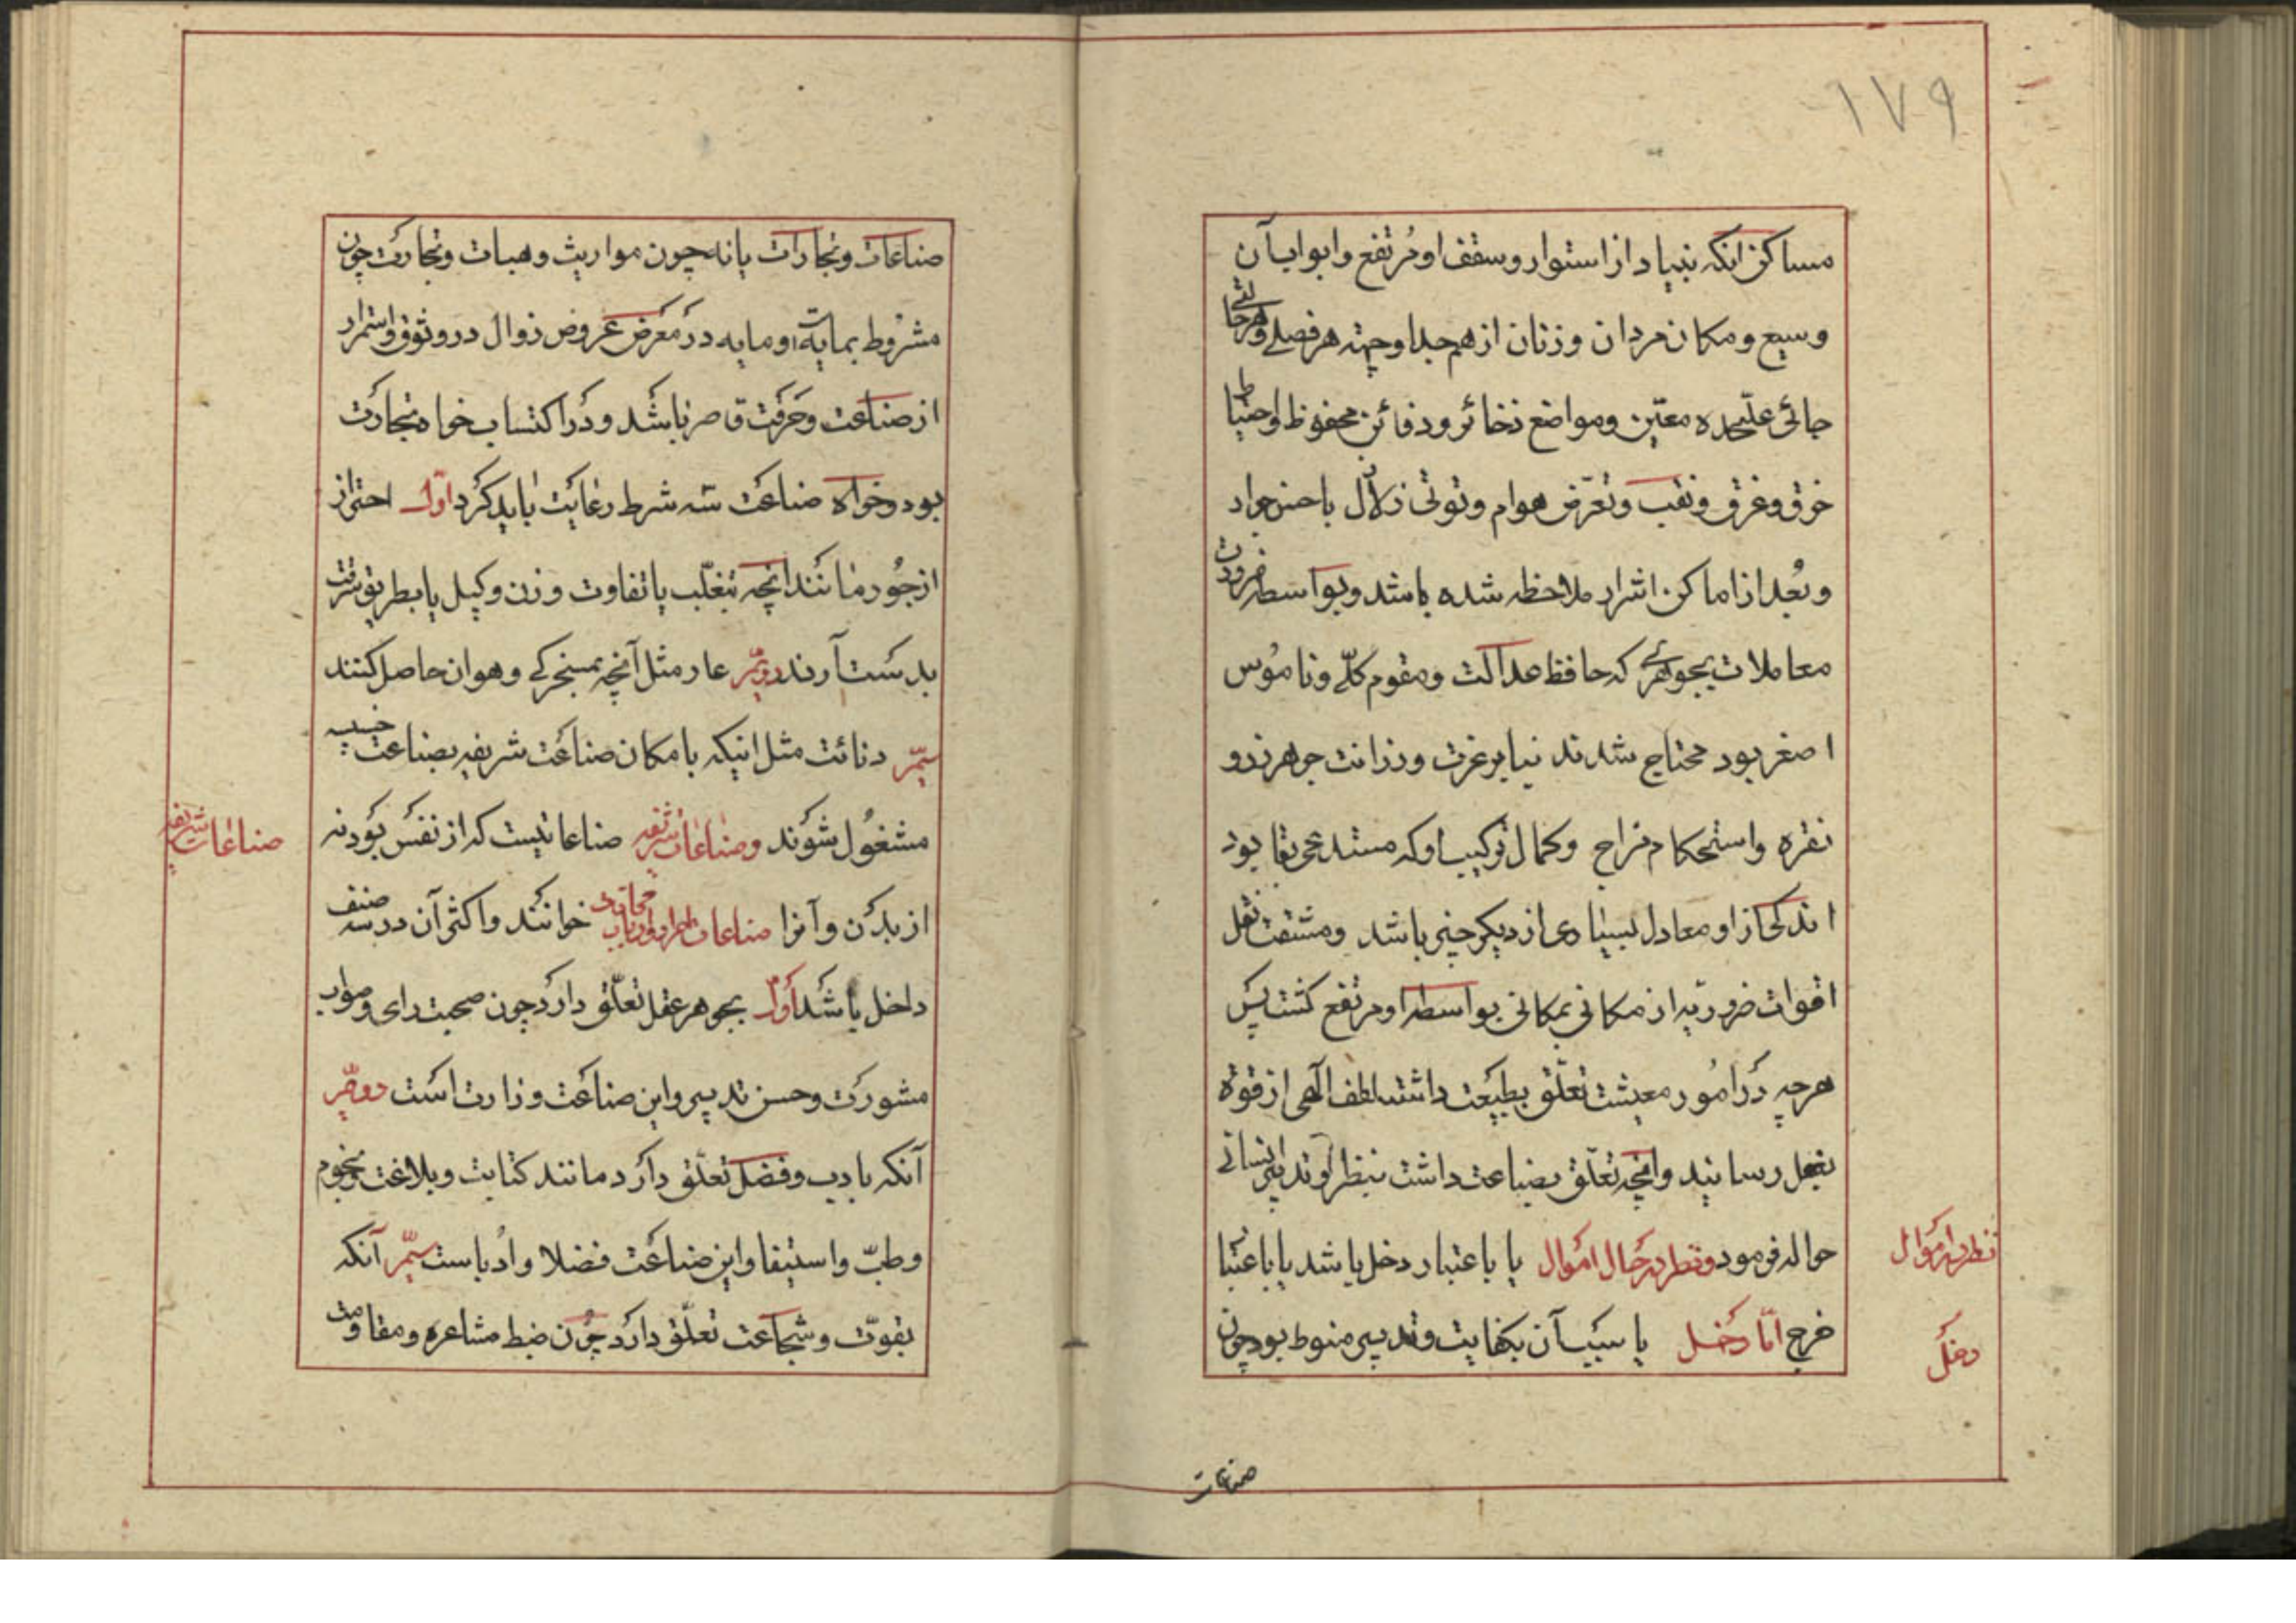 ۱۷۹
مساکن انکه بنیاد از استوار و سقف او مرتفع و ابواب آن
وسیع و مکان مردان و زنان از هم جدا و جهته هر فصلے و هر حالتے
جائی علیحده معیّن و مواضع ذخائر و دفائن محفوظ و احتیاط
خرق و غرق و نقب و تعرّض هوام و توقی زلازل با حسن جواد
و بُعد از اماکن اشرار ملاحظه شده باشد و بواسطه ضرورت
معاملات بجوهرے که حافظ عدالت و مقوم کلّے و ناموس
اصغر بود محتاج شدند بنا بر عزت و رزانت جوهر زر و
نقره و استحکام مزاج و کمال ترکیب او که مستدعی بقا بود
اندکی از او معادل بسیاری از دیکر چیز باشد و مشقت نقل
اقوات ضروریه از مکانی بمکانی بواسطه او مرتفع کشت پس
هر چه در امور معیشت تعلّق بطبیعت داشت لطف الٓهی از قوة
بفعل رسانید و انچه تعلّق بصناعت داشت بنظر و تدبیر انسانے
حواله فرمود و نظر در حال اموال یا باعتبار دخل باشد یا باعتبا
خرج امّا دخل یا سبب آن بکفایت و تدبیر منوط بود چون
نظر در اموال
دخل
صناعات
صناعات و تجارات یا نه چون مواریث و هبات و تجارت چون
مشروط بمایه است و مایه در معرض عروض زوال در وثوق و استمرار
از صناعت و حرفت قاصر باشد و در اکتساب خواه تجارت
بود و خواه صناعت سه شرط رعایت باید کرد اوّل احتراز
از جور مانند انچه بتغلّب یا تفاوت وزن و کیل یا بطریق سرقت
بدست آرند دویّم عار مثل آنچه بمسخرکے و هوان حاصل کنند
سیّم دنائت مثل اینکه با مکان صناعت شریفه بصناعت خسیسه
مشغول شوند و صناعات شریفه صناعاتیست که از نفس بود نه
از بدن و آنرا صناعات احرار و ارباب خوانند و اکثر آن در سه صنف
داخل باشد اوّل بجوهر عقل تعلّق دارد چون صحبت رای و صواب
مشورت و حسن تدبیر و این صناعت وزارت است دویّم
آنکه بادب و فضل تعلّق دارد مانند کتابت و بلاغت و نجوم
و طبّ و استیفا و این صناعت فضلا و ادباست سیّم آنکه
بقوّت و شجاعت تعلّق دارد چون ضبط مشاعره و مقاومت
صناعات شریفه